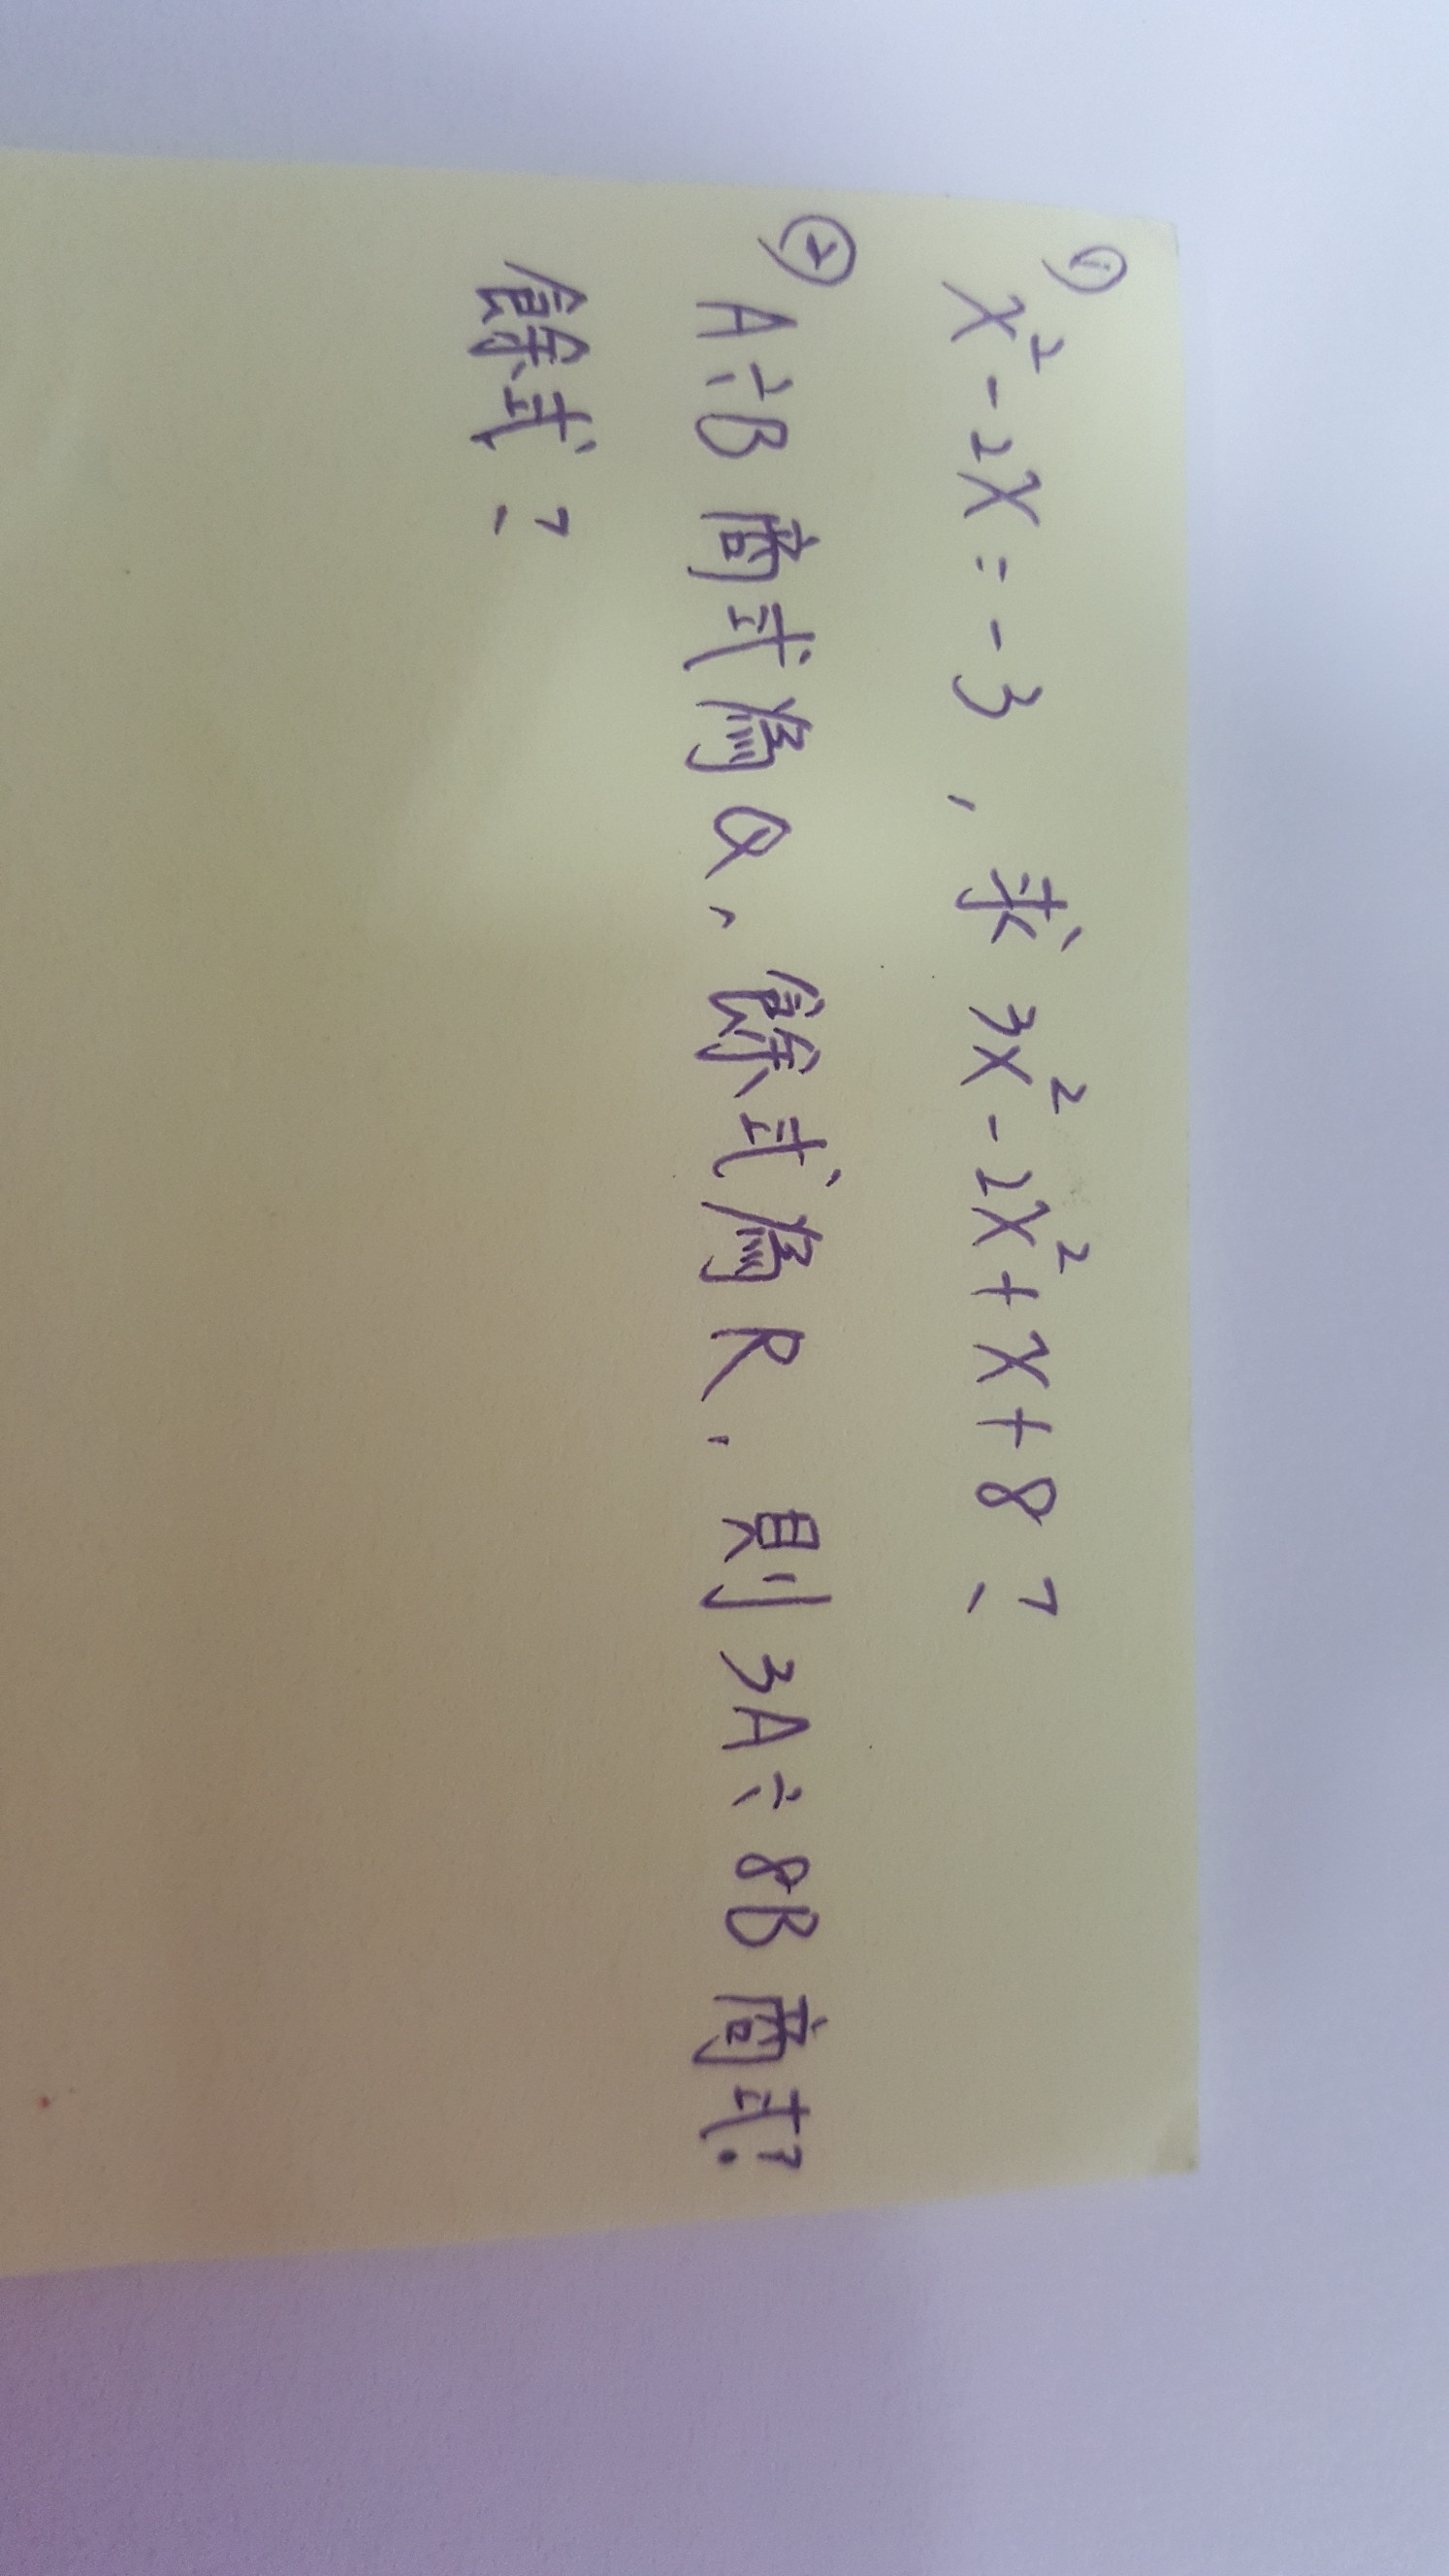 ① x² - 2x = -3 , 求 3x² - 2x² + x + 8 ?
② A ÷ B 商式為 Q , 餘式為 R , 則 3A ÷ 8B 商式?
餘式 ?